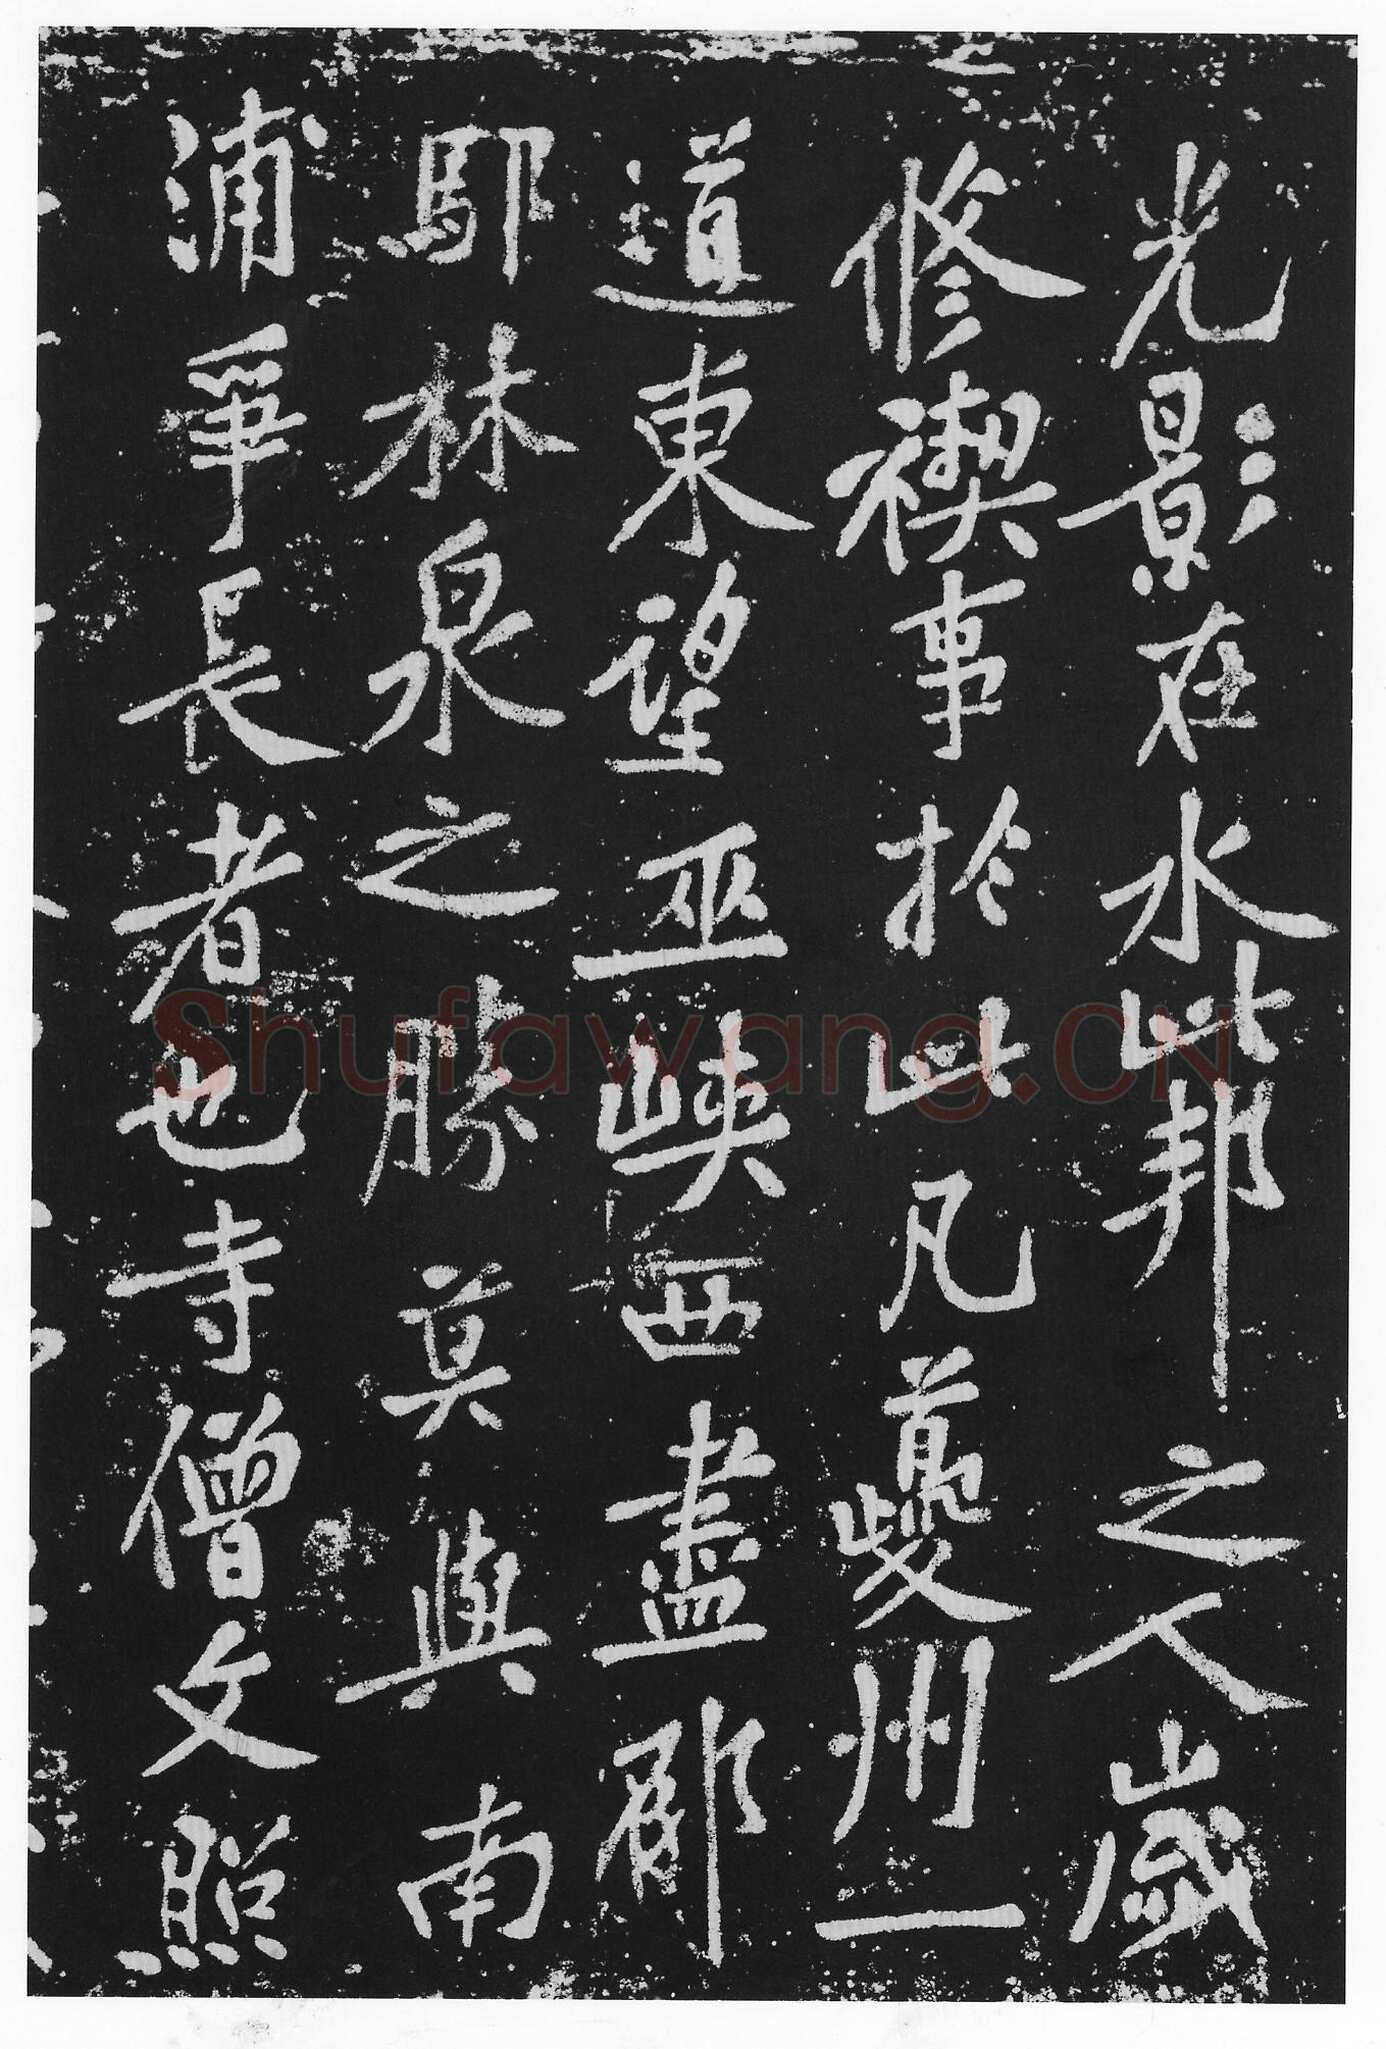 光影在水此邦之人歲
修禊事於此凡夔州一
道東望巫峽西盡郁
鄢林泉之勝莫與南
浦爭長者也寺僧文照
Shufawang.CN